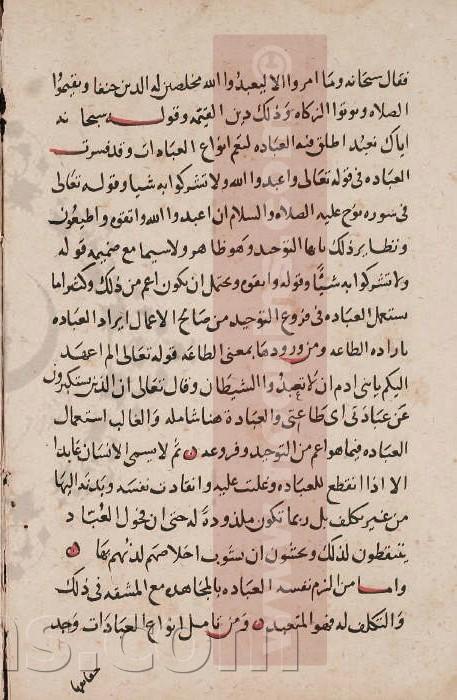 فقال سبحانه وما امروا الا ليعبدوا الله مخلصين له الدين حنفا ويقيموا
الصلاه ويوتوا الزكاه وذلك دين القيمه وقوله سبحانه
اياك نعبد اطلق فيه العباده ليعم انواع العبادات وقد فسرت
العباده في قوله تعالى واعبدوا الله ولا تشركوا به شيا وقوله تعالى
في سوره نوح عليه الصلاه والسلام ان اعبدوا الله واتقوه واطيعون
ونظاير ذلك بانها التوحيد وهو ظاهر ولاسيما مع ضميمه قوله
ولا تشركوا به شيًا وقوله واتقوه ويحتمل ان يكون اعم من ذلك وكثيرا ما
يستعمل العباده في فروع التوحيد من صالح الاعمال ايراد العباده
باراده الطاعه ومن ورودها بمعنى الطاعه قوله تعالى الم اعهد
اليكم يابني ادم ان لا تعبدوا الشيطان وقال تعالى ان الذين يستكبرون
عن عبادتي اى طاعتي والعبادة هنا شامله والغالب استعمال
العباده فيما هو اعم من التوحيد وفروعه ثم لا يسمى الانسان عابدا
الا اذا انقطع للعباده وغلبت عليه وانقادت نفسه وبدنه اليها
من غير تكلف بل ربما تكون ملذوذة له حتى ان فحول العُبّاد
يتيقظون لذلك ويخشون ان يشوب اخلاصهم لذتهم بها
واما من الزم نفسه العباده بالمجاهده مع المشقه في ذلك
والتكلف له فهو المتعبد ومن تامل انواع العبادات وجد